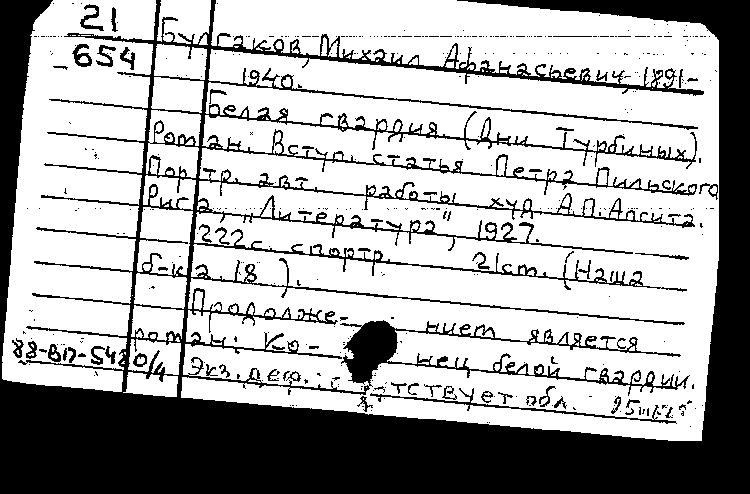 21
654
Булгаков, Михаил Афанасьевич, 1891-
1940.
Белая гвардия. (Дни Турбиных).
Роман. Вступ. статья Петра Пильского
Портр. авт. работы худ. А.П. Апсита.
Рига, "Литература", 1927.
222с. с портр. 21см. (Наша
б-ка. 18).
Продолже- нием является
роман: Ко- нец белой гвардии.
88-ВП-5420/4 Экз. деф.: отсутствует обл.